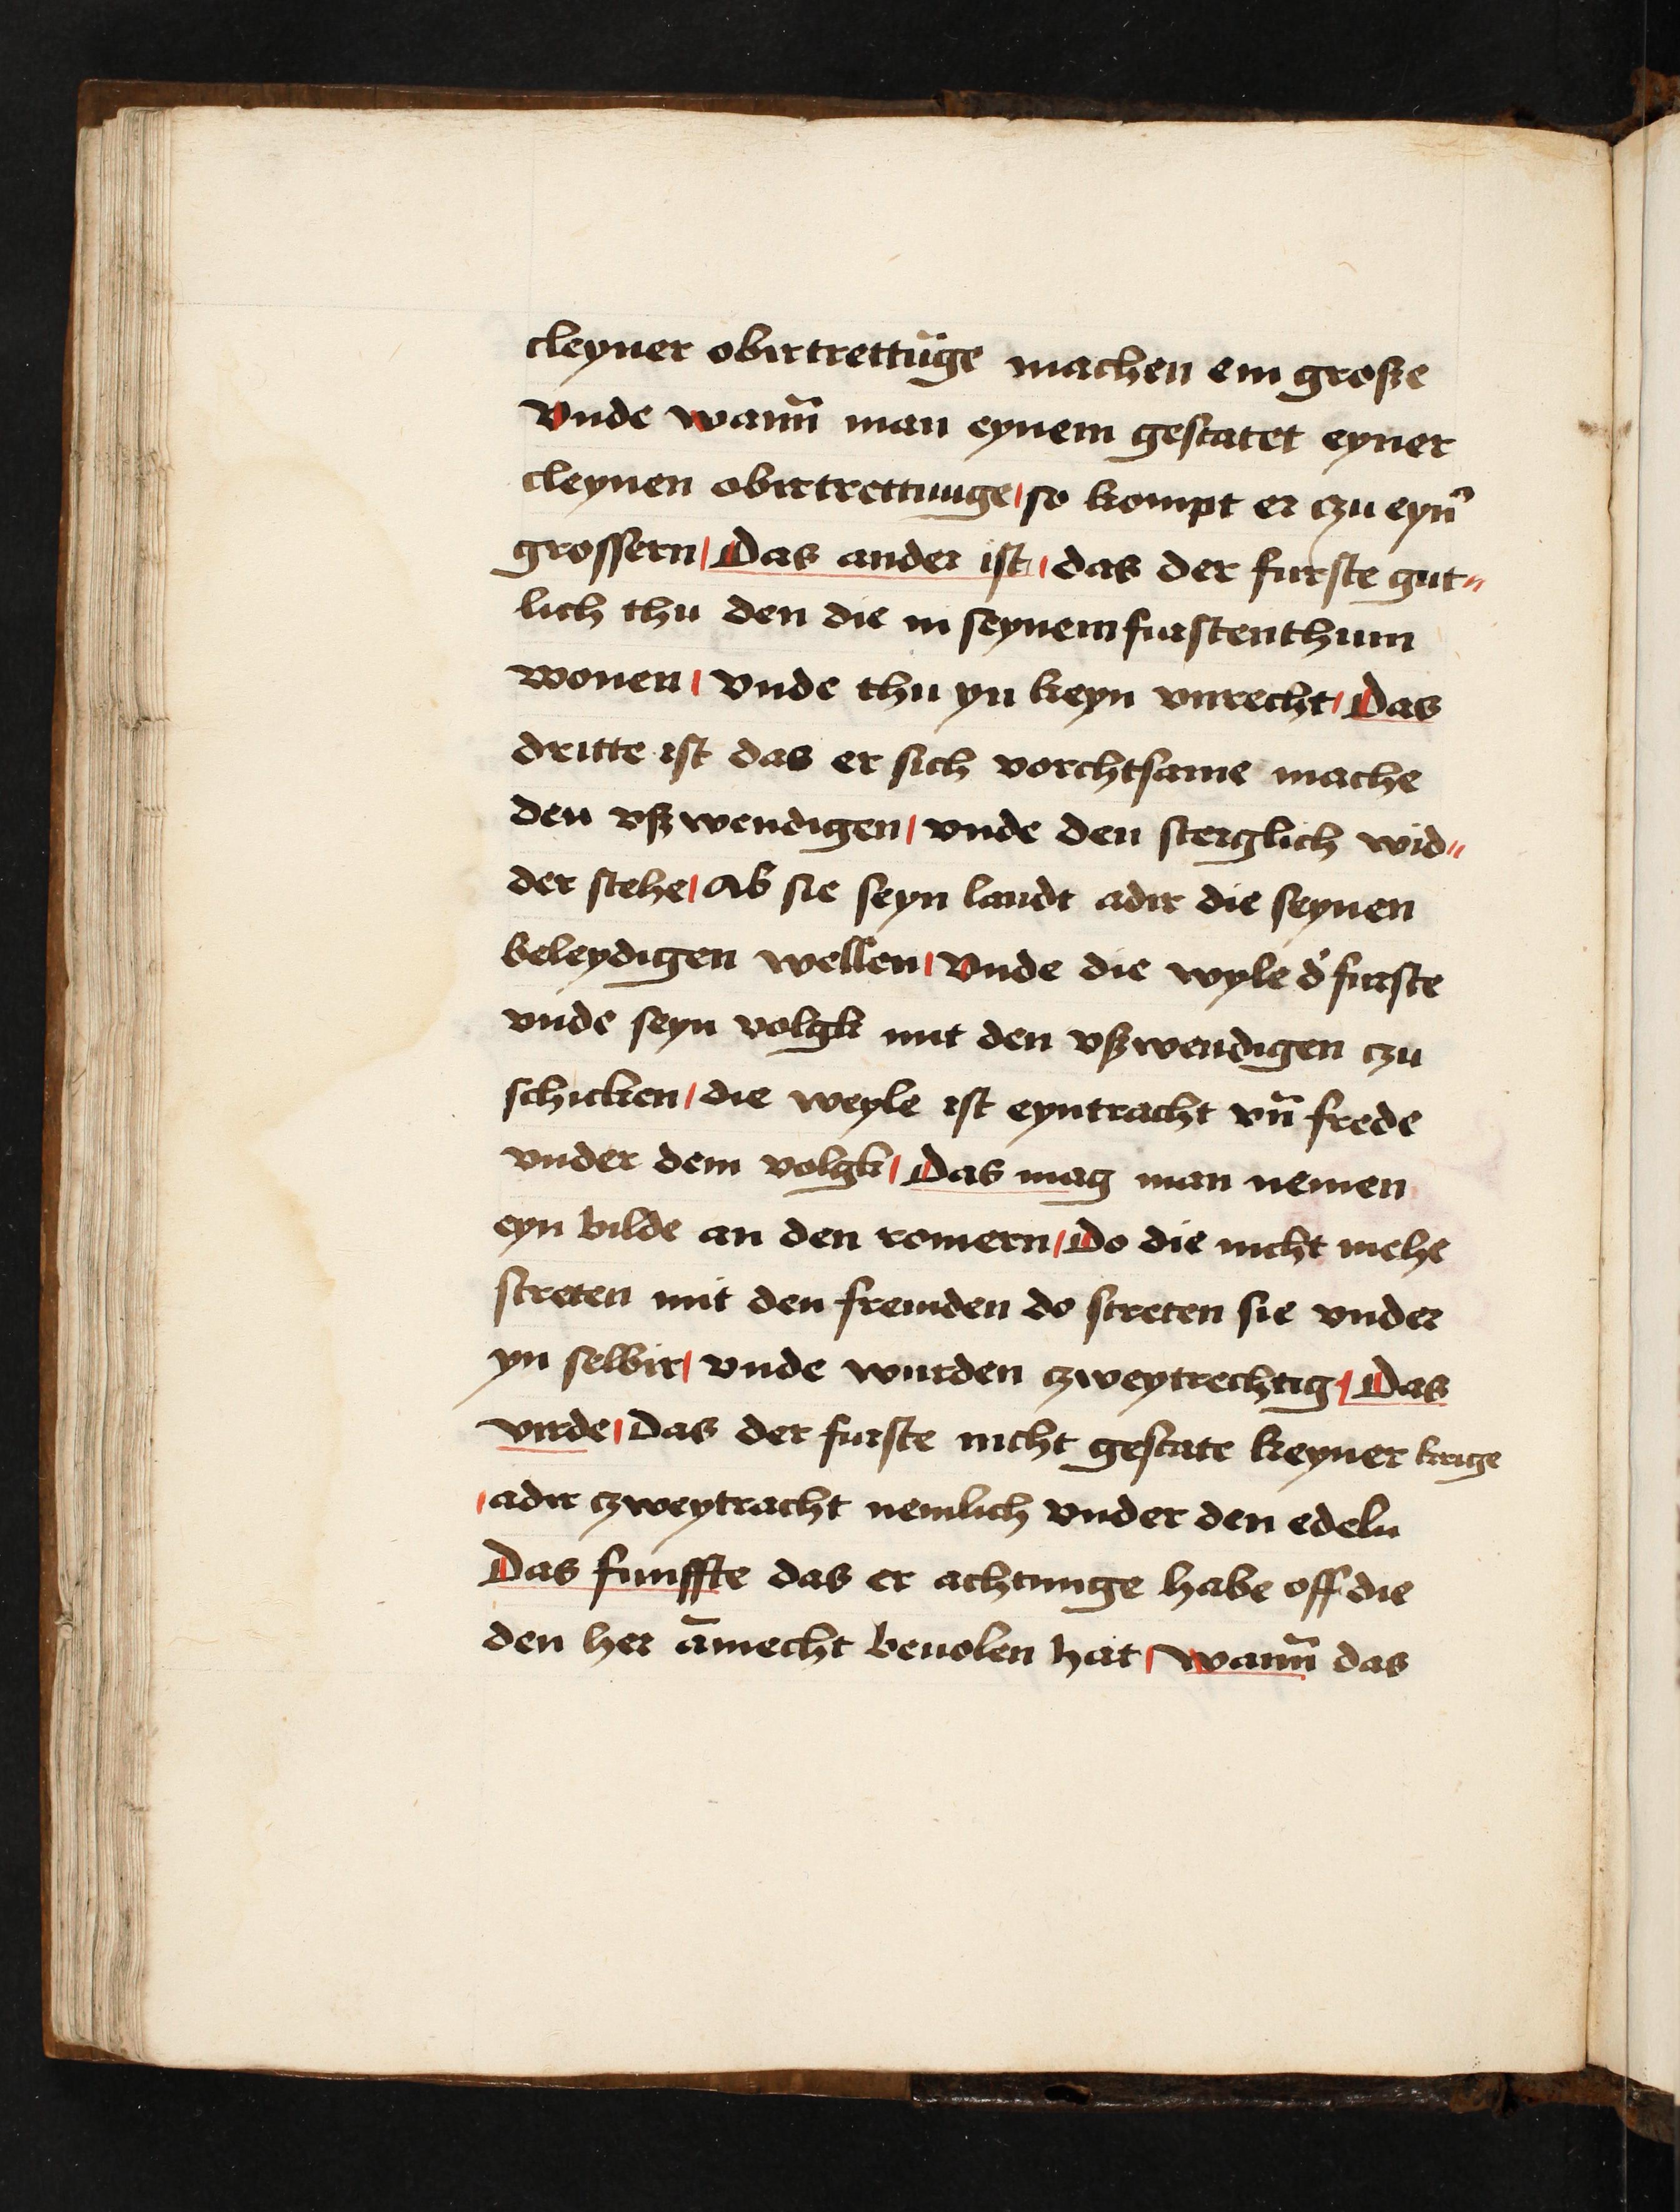 cleyner obirtrettūge machen ein große
Vnde wann̄ man eynem gestatet eyner
cleynen obirtrettunge / so kompt er czu eyn̄
grossern / Das ander ist / das der furste gut„
lich thu den die in seynem furstenthum
wonen / vnde thu yn keyn vnrecht / Das
dritte ist das er sich vorchtsame mache
den vßwendigen / vnde den sterglich wid„
der stehe / Ab sie seyn landt adir die seynen
beleydigen wellen / Vnde die wyle d̄ furste
vnde seyn volgk mit den vßwendigen czu
schicken / die weyle ist eyntracht vn̄ frede
vnder dem volgk / Das mag man nemen
eyn bilde an den romern / Do die nicht mehe
streten mit den fremden do streten sie vnder
yn selbir / vnde wurden czweytrechtig / Das
virde / Das der furste nicht gestate keyner krige
/ adir czweytracht nemlich vnder den edeln
Das funffte das er achtunge habe off die
den her āmecht beuolen hat / wann̄ das